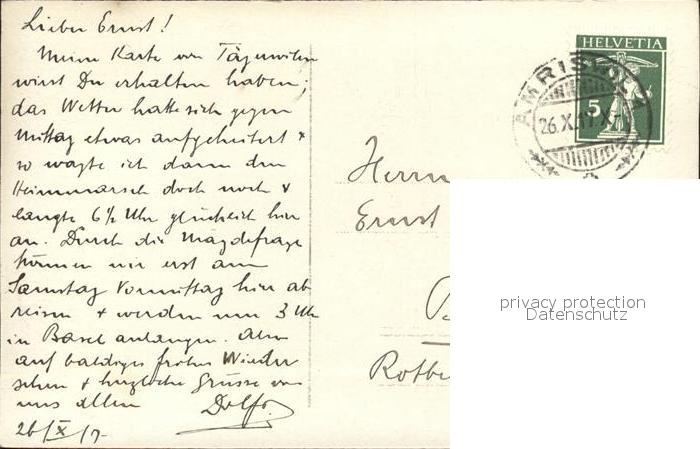 Lieber Ernst!
Meine Karte von Tägerwilen
wirst Du erhalten haben;
das Wetter hatte sich gegen
Mittag etwas aufgeheitert &
so wagte ich dann den
Heimmarsch doch noch &
langte 6½ Uhr glücklich hier
an. Durch die Mägdefrage
können wir erst am
Samstag Vormittag hier ab
reisen & werden um 3 Uhr
in Basel anlangen. Also
auf baldiges frohes Wieder
sehen & herzliche Grüsse von
uns allen Dolf.
26/X/17.
HELVETIA
5
AMRISWIL
26.X.17.X
Herrn
Ernst
privacy protection
Datenschutz